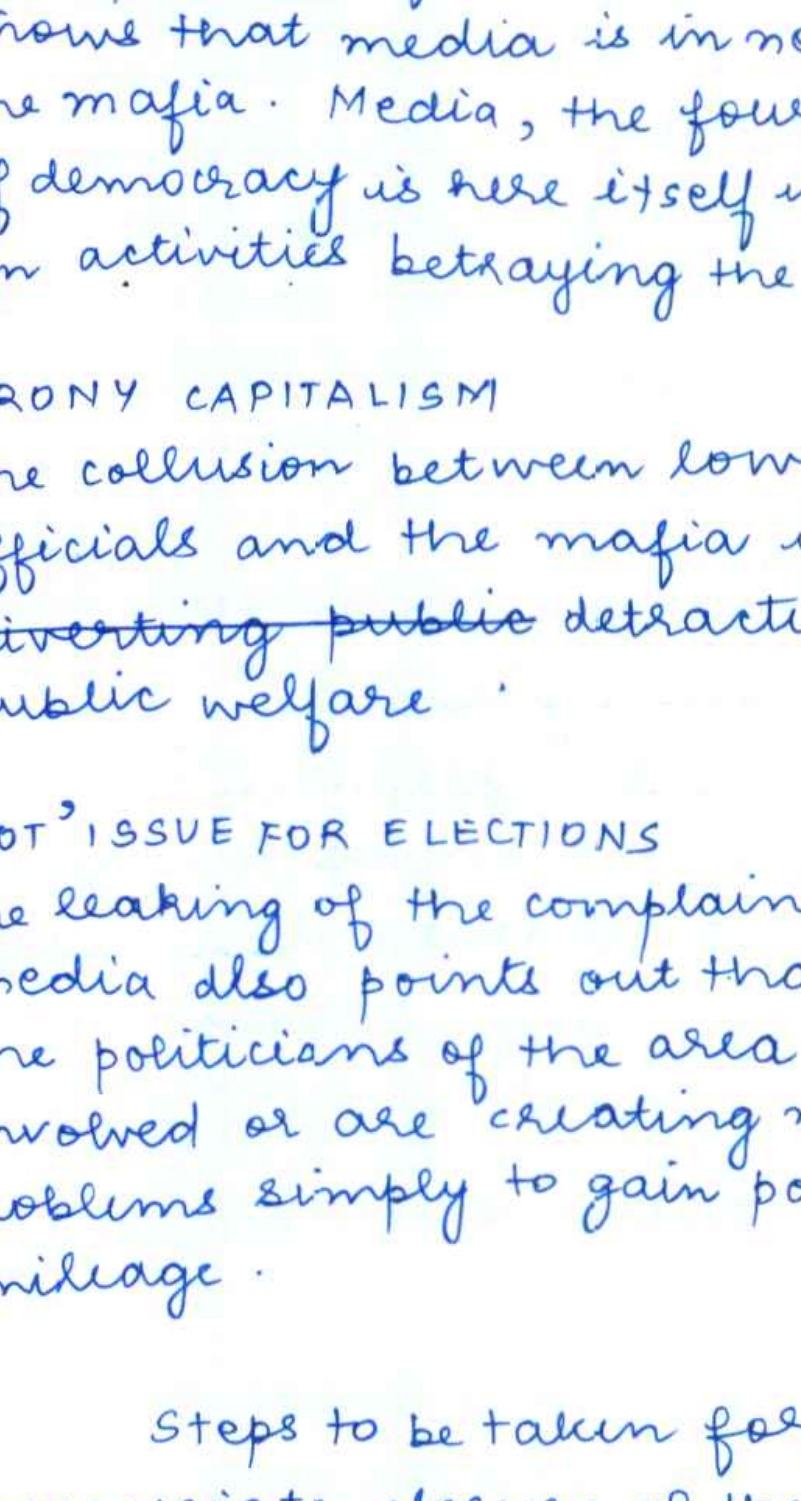 hows that media is in ne
he mafia. Media, the four
f democracy is here itself
n activities betraying the
RONY CAPITALISM
he collusion between low
fficials and the mafia
iverting public detracti
ublic welfare.
OT' ISSUE FOR ELECTIONS
e leaking of the complain
edia also points out tha
he politicians of the area
nvolved or are creating
oblems simply to gain po
mileage.
Steps to be taken for